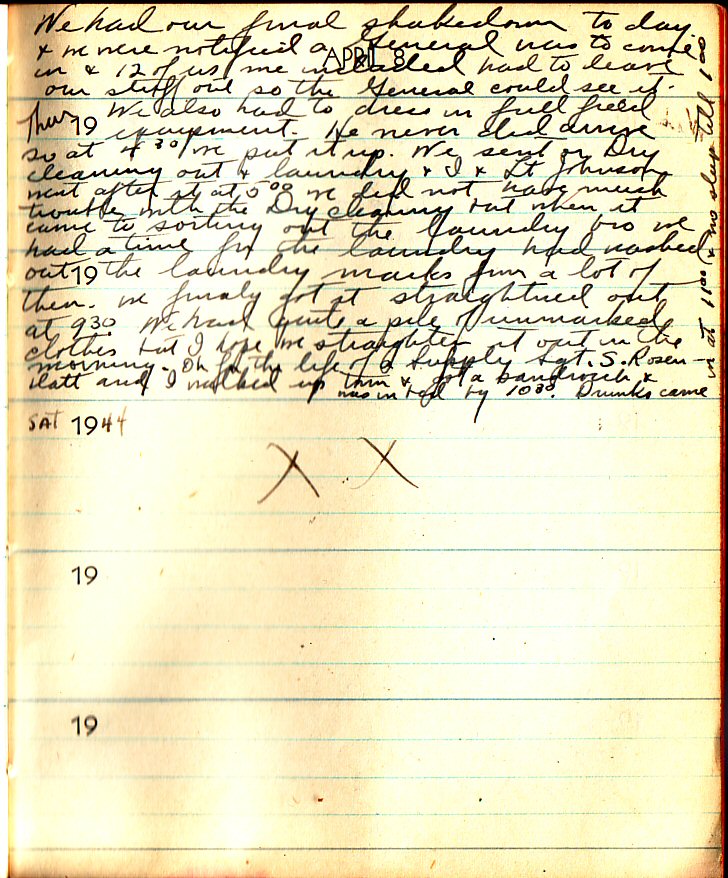 We had our final shakedown to day
APRIL 8
& we were notified a General was to come
in & 12 of us, me included had to leave
our stuff out so the General could see it.
Thur 19 We also had to dress in full field
equipment. He never did arrive
so at 4 30 we put it up. We sent or Dry
cleaning out & laundry & I & Lt Johnson
went after it at 5 00 we did not have much
trouble with the Dry cleaning but when it
came to sorting out the laundry we
had a time for the laundry had washed
out 19 the laundry marks from a lot of
them. We finaly got it straightned out
at 9 30. We had quite a pile of unmarked
clothes but I hope we straighten it out in the
morning. Oh for the life of a Supply Sgt. S. Rosen-
blatt and I walked up town & got a sandwich &
was in bed by 10 30. Drunks came
in at 11 00 & no sleep till 1 00
SAT 1944
X X
19
19